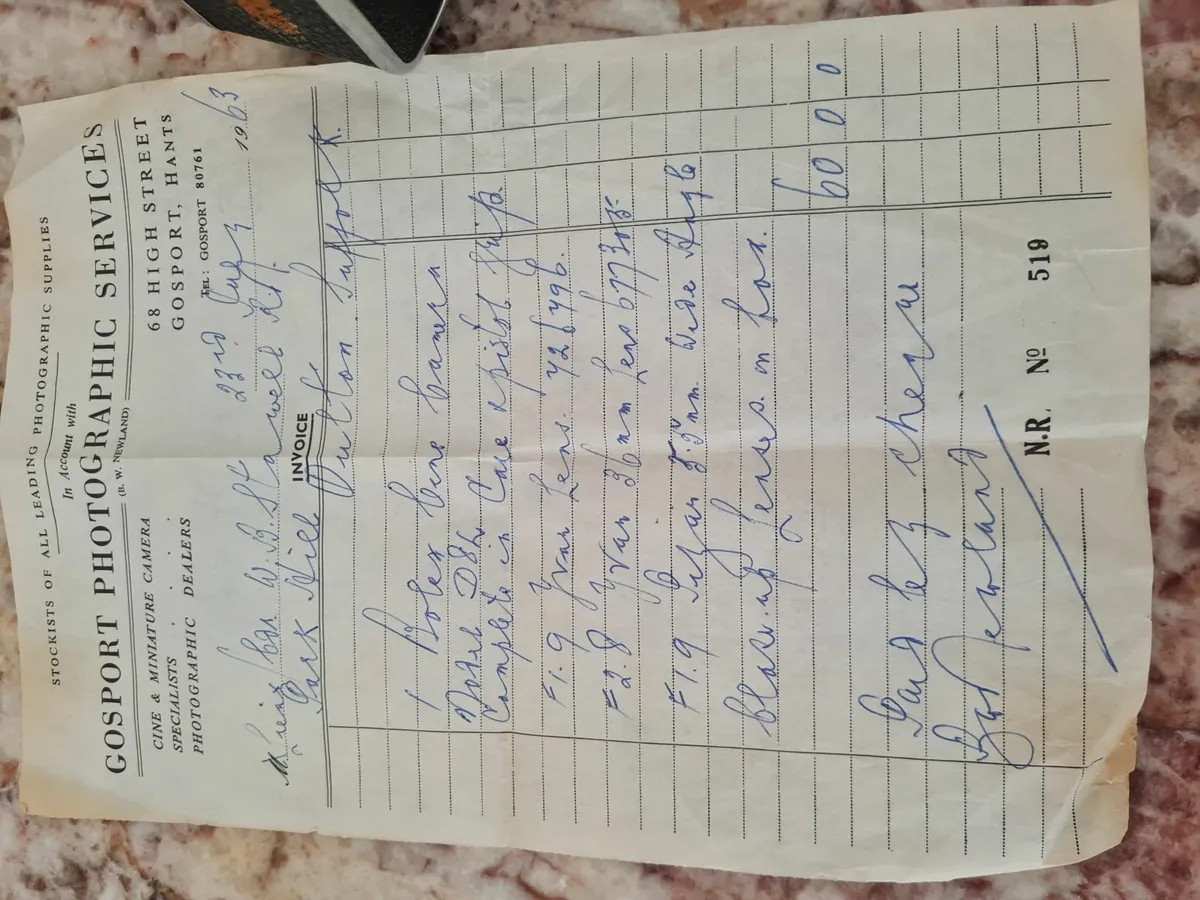 STOCKISTS OF ALL LEADING PHOTOGRAPHIC SUPPLIES
In Account with
GOSPORT PHOTOGRAPHIC SERVICES
(B. W. NEWLAND)
CINE & MINIATURE CAMERA
SPECIALISTS . . .
PHOTOGRAPHIC DEALERS
68 HIGH STREET
GOSPORT, HANTS
TEL: GOSPORT 80761
23rd 1963
M W.B. Stanwell R.N.
Park Hill INVOICE Dutton Suffolk.
1 Bolex Cine Camera
Model D8L
Complete in Case & pistol grip
F1.9 Yvar Lens. 426496.
F2.8 Yvar 36mm Lens 677305
F1.9 Pizar 5.5mm Wide Angle
Close-up Lenses in box.
60 0 0
Paid by cheque
BW Newland
N.R. Nº 519